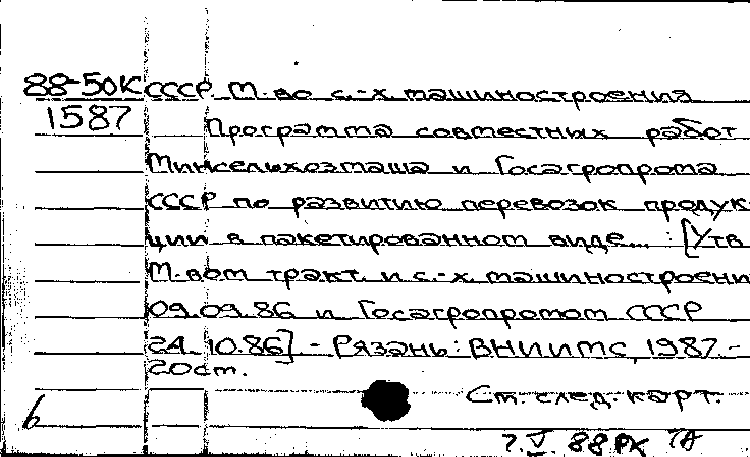 88-50К СССР. М-во с.-х. машиностроения
1587 Программа совместных работ
Минсельхозмаша и Госагропрома
СССР по развитию перевозок продук-
ции в пакетированном виде... : [Утв.
М-вом тракт. и с.-х. машиностроени
09.09.86 и Госагропромом СССР
24.10.86] - Рязань: ВНИИМС, 1987.-
20 см.
См. след. карт.
б
V 88 РК